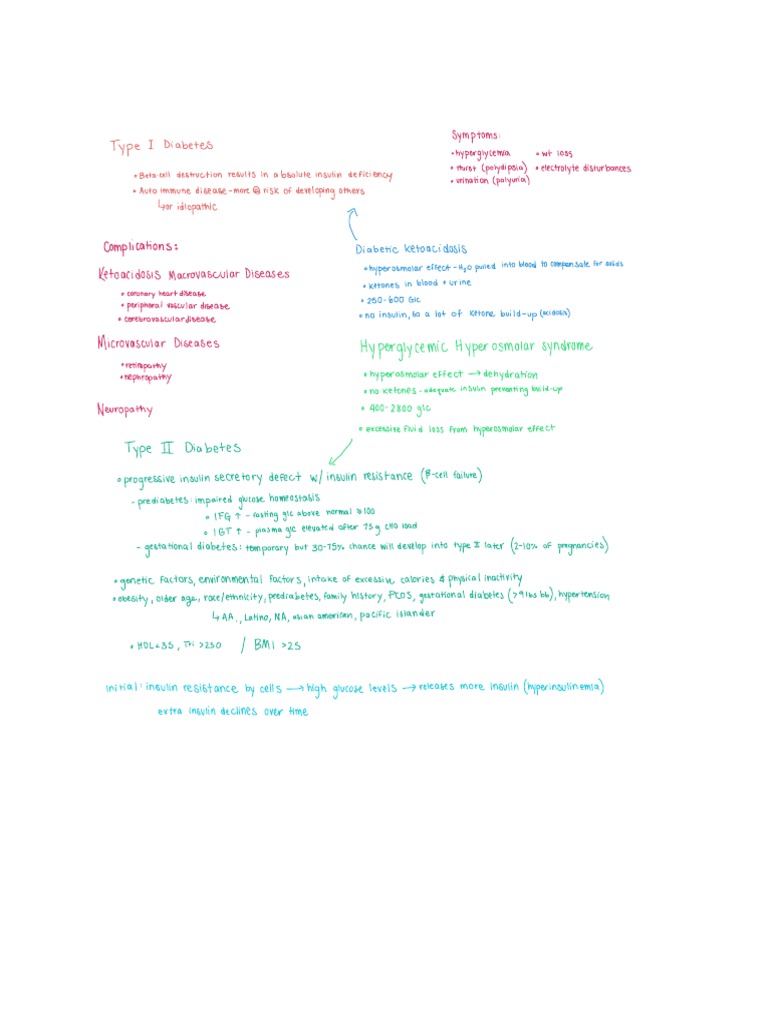 Type I Diabetes
• Beta-cell destruction results in a absolute insulin deficiency
• Auto immune disease - more @ risk of developing others
↳ or idiopathic
Symptoms:
• hyperglycemia
• thirst (polydipsia)
• urination (polyuria)
• wt loss
• electrolyte disturbances
Complications:
Ketoacidosis Macrovascular Diseases
• coronary heart disease
• peripheral vascular disease
• cerebrovascular disease
Microvascular Diseases
• retinpathy
• nephropathy
Neuropathy
Diabetic ketoacidosis
• hyperosmolar effect - H2O pulled into blood to compensate for solids
• ketones in blood + urine
• 250-600 Glc
• no insulin, so a lot of ketone build-up (acidosis)
Hyperglycemic Hyperosmolar syndrome
• hyperosmolar effect → dehydration
• no ketones - adequate insulin preventing build-up
• 400-2800 glc
• excessive fluid loss from hyperosmolar effect
Type II Diabetes
• progressive insulin secretory defect w/ insulin resistance (β-cell failure)
- prediabetes: impaired glucose homeostasis
• IFG ↑ - fasting glc above normal ≥100
• IGT ↑ - plasma glc elevated after 75g CHO load
- gestational diabetes: temporary but 30-75% chance will develop into type II later (2-10% of pregnancies)
• genetic factors, environmental factors, intake of excessive calories & physical inactivity
• obesity, older age, race/ethnicity, prediabetes, family history, PCOS, gestational diabetes (>9 lbs bb), hypertension
↳ AA., Latino, NA, asian american, pacific islander
• HDL<35, Tri >250 / BMI >25
Initial: insulin resistance by cells → high glucose levels → releases more insulin (hyperinsulinemia)
extra insulin declines over time